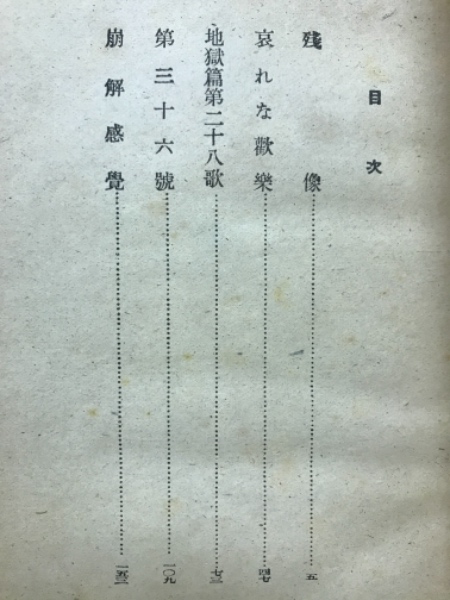 目次
残像……五
哀れな歡樂……四七
地獄篇第二十八歌……七三
第三十六號……一〇九
崩解感覺……一五三